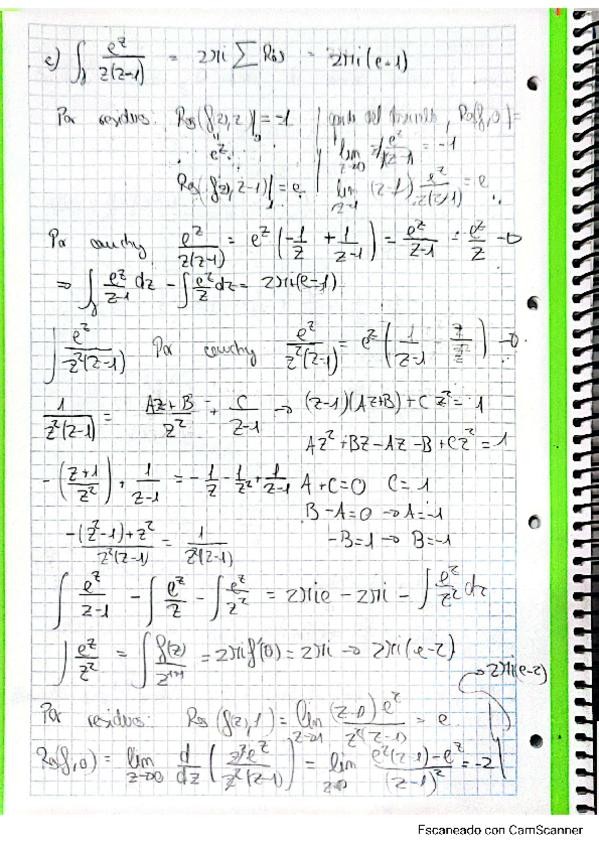 c) ∫_γ e^z/(z(z-1)) = 2πi ∑ Res = 2πi(e-1)
Por residuos: Res(f(z),z)|_0 = -1 | , Res(f,0) =
e^z lim_{z→0} z e^z/(z(z-1)) = -1
Res(f(z),z-1)|_1 = e | lim_{z→1} (z-1) e^z/(z(z-1)) = e
Por cauchy e^z/(z(z-1)) = e^z(-1/z + 1/(z-1)) = e^z/(z-1) - e^z/z →
⇒ ∫_γ e^z/(z-1) dz - ∫ e^z/z dz = 2πi(e-1)
∫ e^z/(z²(z-1)) Por cauchy e^z/(z²(z-1)) = e^z(1/(z-1) - /z²) →
1/(z²(z-1)) = (Az+B)/z² + C/(z-1) → (z-1)(Az+B) + Cz² = 1
Az² + Bz - Az - B + Cz² = 1
-((z+1)/z²) + 1/(z-1) = -1/z - 1/z² + 1/(z-1) A+C=0 C=1
B-A=0 → A=-1
(-(z²-1)+z²)/(z²(z-1)) = 1/(z²(z-1)) -B=1 → B=-1
∫ e^z/(z-1) - ∫ e^z/z - ∫ e^z/z² = 2πie - 2πi - ∫ e^z/z² dz
∫ e^z/z² = ∫ f(z)/z^{1+1} = 2πi f'(0) = 2πi → 2πi(e-2)
→ 2πi(e-2)
Por residuos: Res(f(z),1) = lim_{z→1} (z-1)e^z/(z²(z-1)) = e
Res(f,0) = lim_{z→0} d/dz (z²e^z/(z²(z-1))) = lim_{z→0} (e^z(z-1)-e^z)/(z-1)² = -2
Escaneado con CamScanner